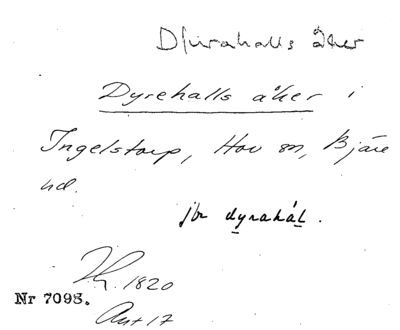 Djurahalls åker
Dyrehalls åker i
Ingelstorp, Hov sn, Bjäre
hd.
jbr dyrahál.
1820
Nr 7098.